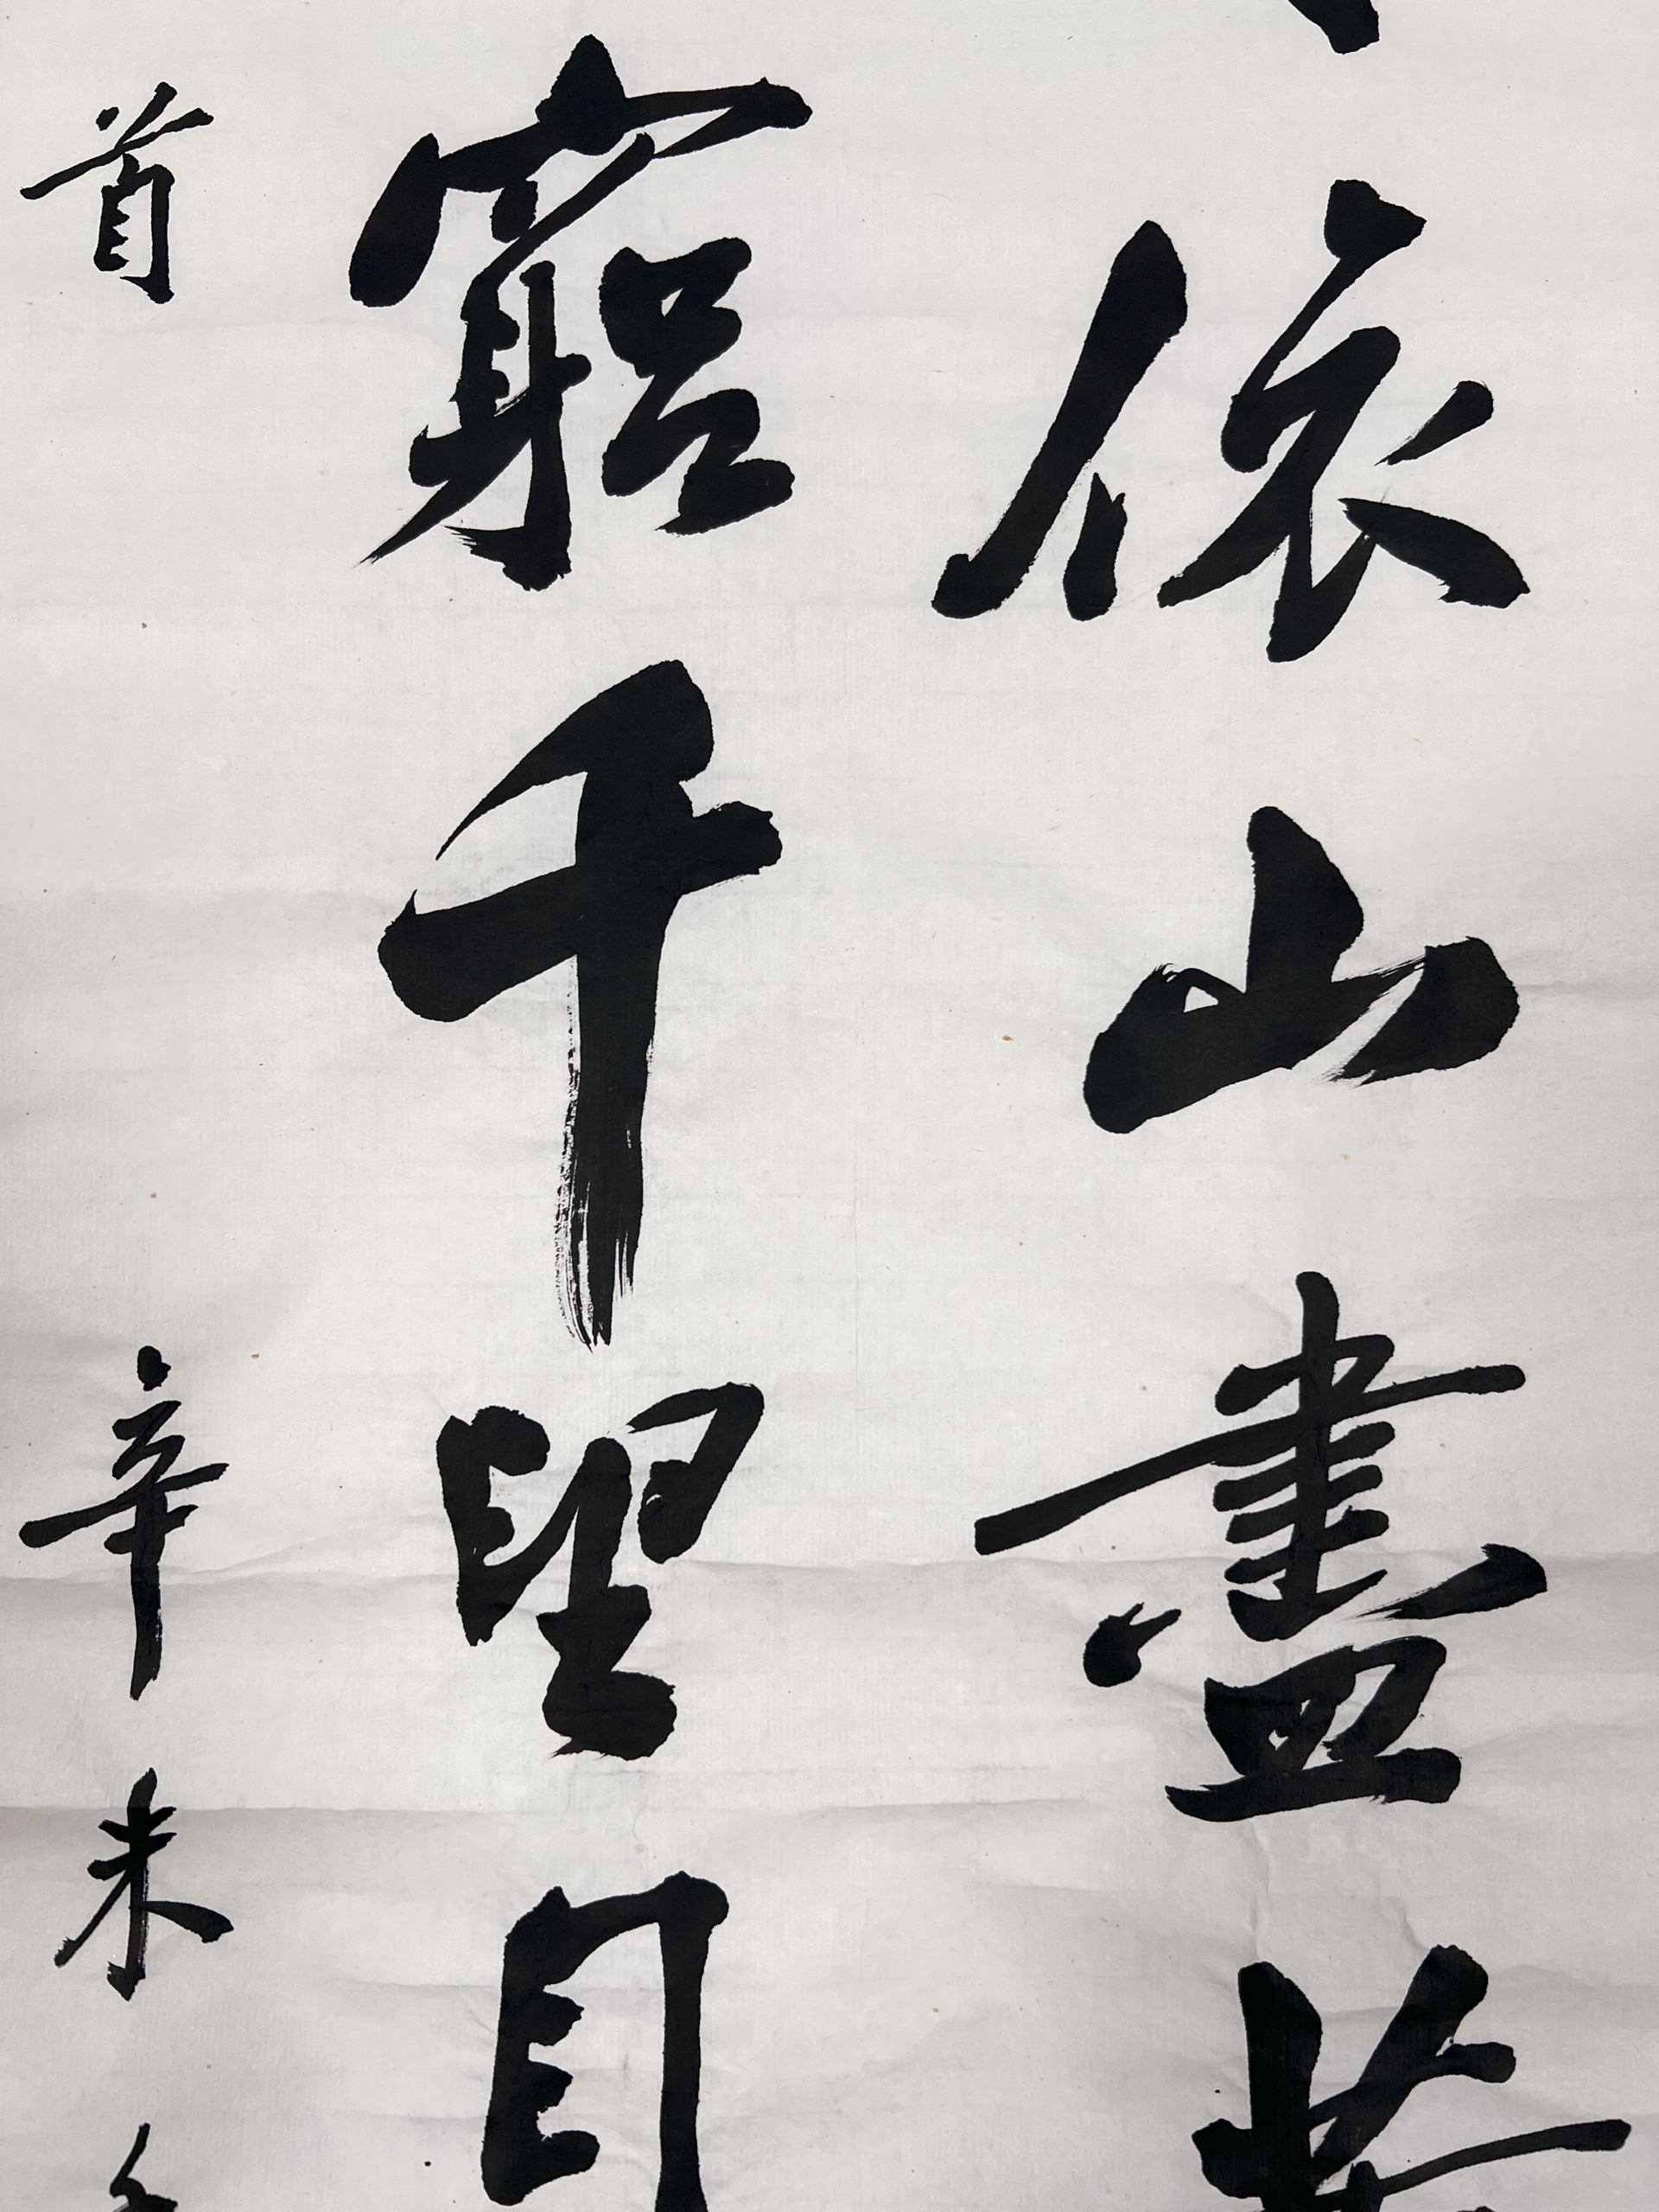 依山盡黃
窮千望目
首 辛未